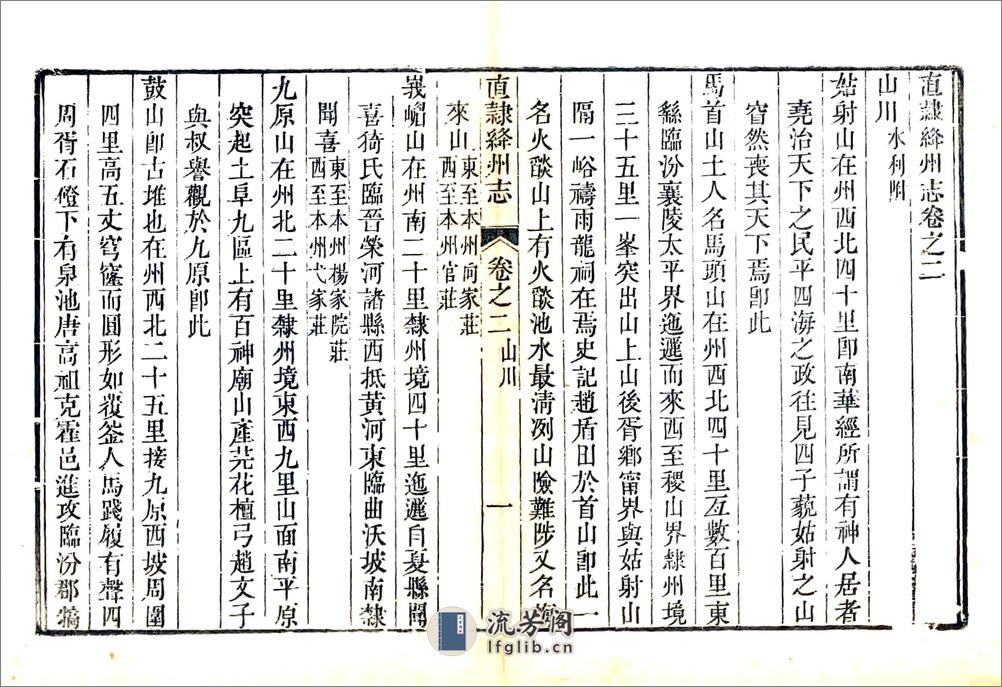 直隸絳州志卷之二
山川 水利附
姑射山在州西北四十里卽南華經所謂有神人居者
堯治天下之民平四海之政往見四子藐姑射之山
窅然喪其天下焉卽此
馬首山土人名馬頭山在州西北四十里亙數百里東
緜臨汾襄陵太平界迤邐而來西至稷山界隸州境
三十五里一峯突出山上山後胥鄉甯界與姑射山
隔一峪禱雨龍祠在焉史記趙盾田於首山卽此一
名火燄山上有火燄池水最淸冽山險難陟又名
直隸絳州志 卷之二 山川 一
來山 東至本州向家莊 西至本州官莊
峩嵋山在州南二十里隸州境四十里迤邐自夏縣聞
喜猗氏臨晉榮河諸縣西抵黃河東臨曲沃坡南隸
聞喜 東至本州楊家院莊 西至本州弋家莊
九原山在州北二十里隸州境東西九里山面南平原
突起土阜九區上有百神廟山產芫花檀弓趙文子
與叔譽觀於九原卽此
鼓山卽古堆也在州西北二十五里接九原西坡周圍
四里高五丈穹窿而圓形如覆釜人馬踐履有聲四
周胥石磴下有泉池唐高祖克霍邑進攻臨汾郡犒
流芳閣
lfglib.cn